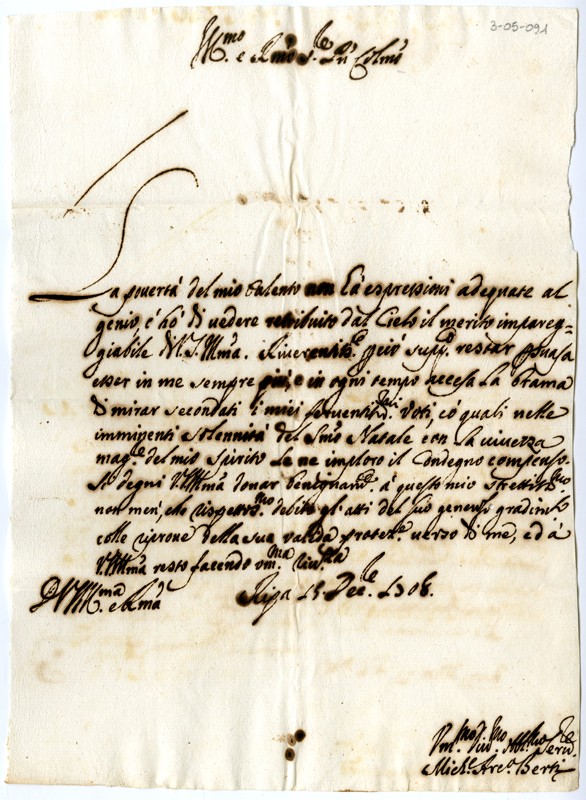 3-05-091
Ill.mo e R.mo S.re P.n Col.mo
La povertà del mio talento non hà espressioni adequate al
genio, c'hò di vedere retribuito dal Cielo il merito impareg=
giabile di V.S. Ill.ma. Riverentem.e però supp.o restar persuasa
esser in me sempre più, e in ogni tempo accesa la brama
di mirar secondati i miei ferventis.mi Voti, co' quali nelle
imminenti solennità del S.mo Natale con la vivezza
mag.e del mio spirito le ne imploro il condegno compenso.
Si degni V.S.Ill.ma donar benignam.e à questo mio strettis.mo
non men, che rispett.mo debito gl'atti del suo generoso gradim.to
colle riprove della sua valida protez.e verso di me, ed à
V.S.Ill.ma resto facendo um.ma riv.za
D V.S.Ill.ma e R.ma
15 Dec.e 1708.
Um.mo Div.mo Obb.mo Serv.re
Mich.e Arc.o Berti